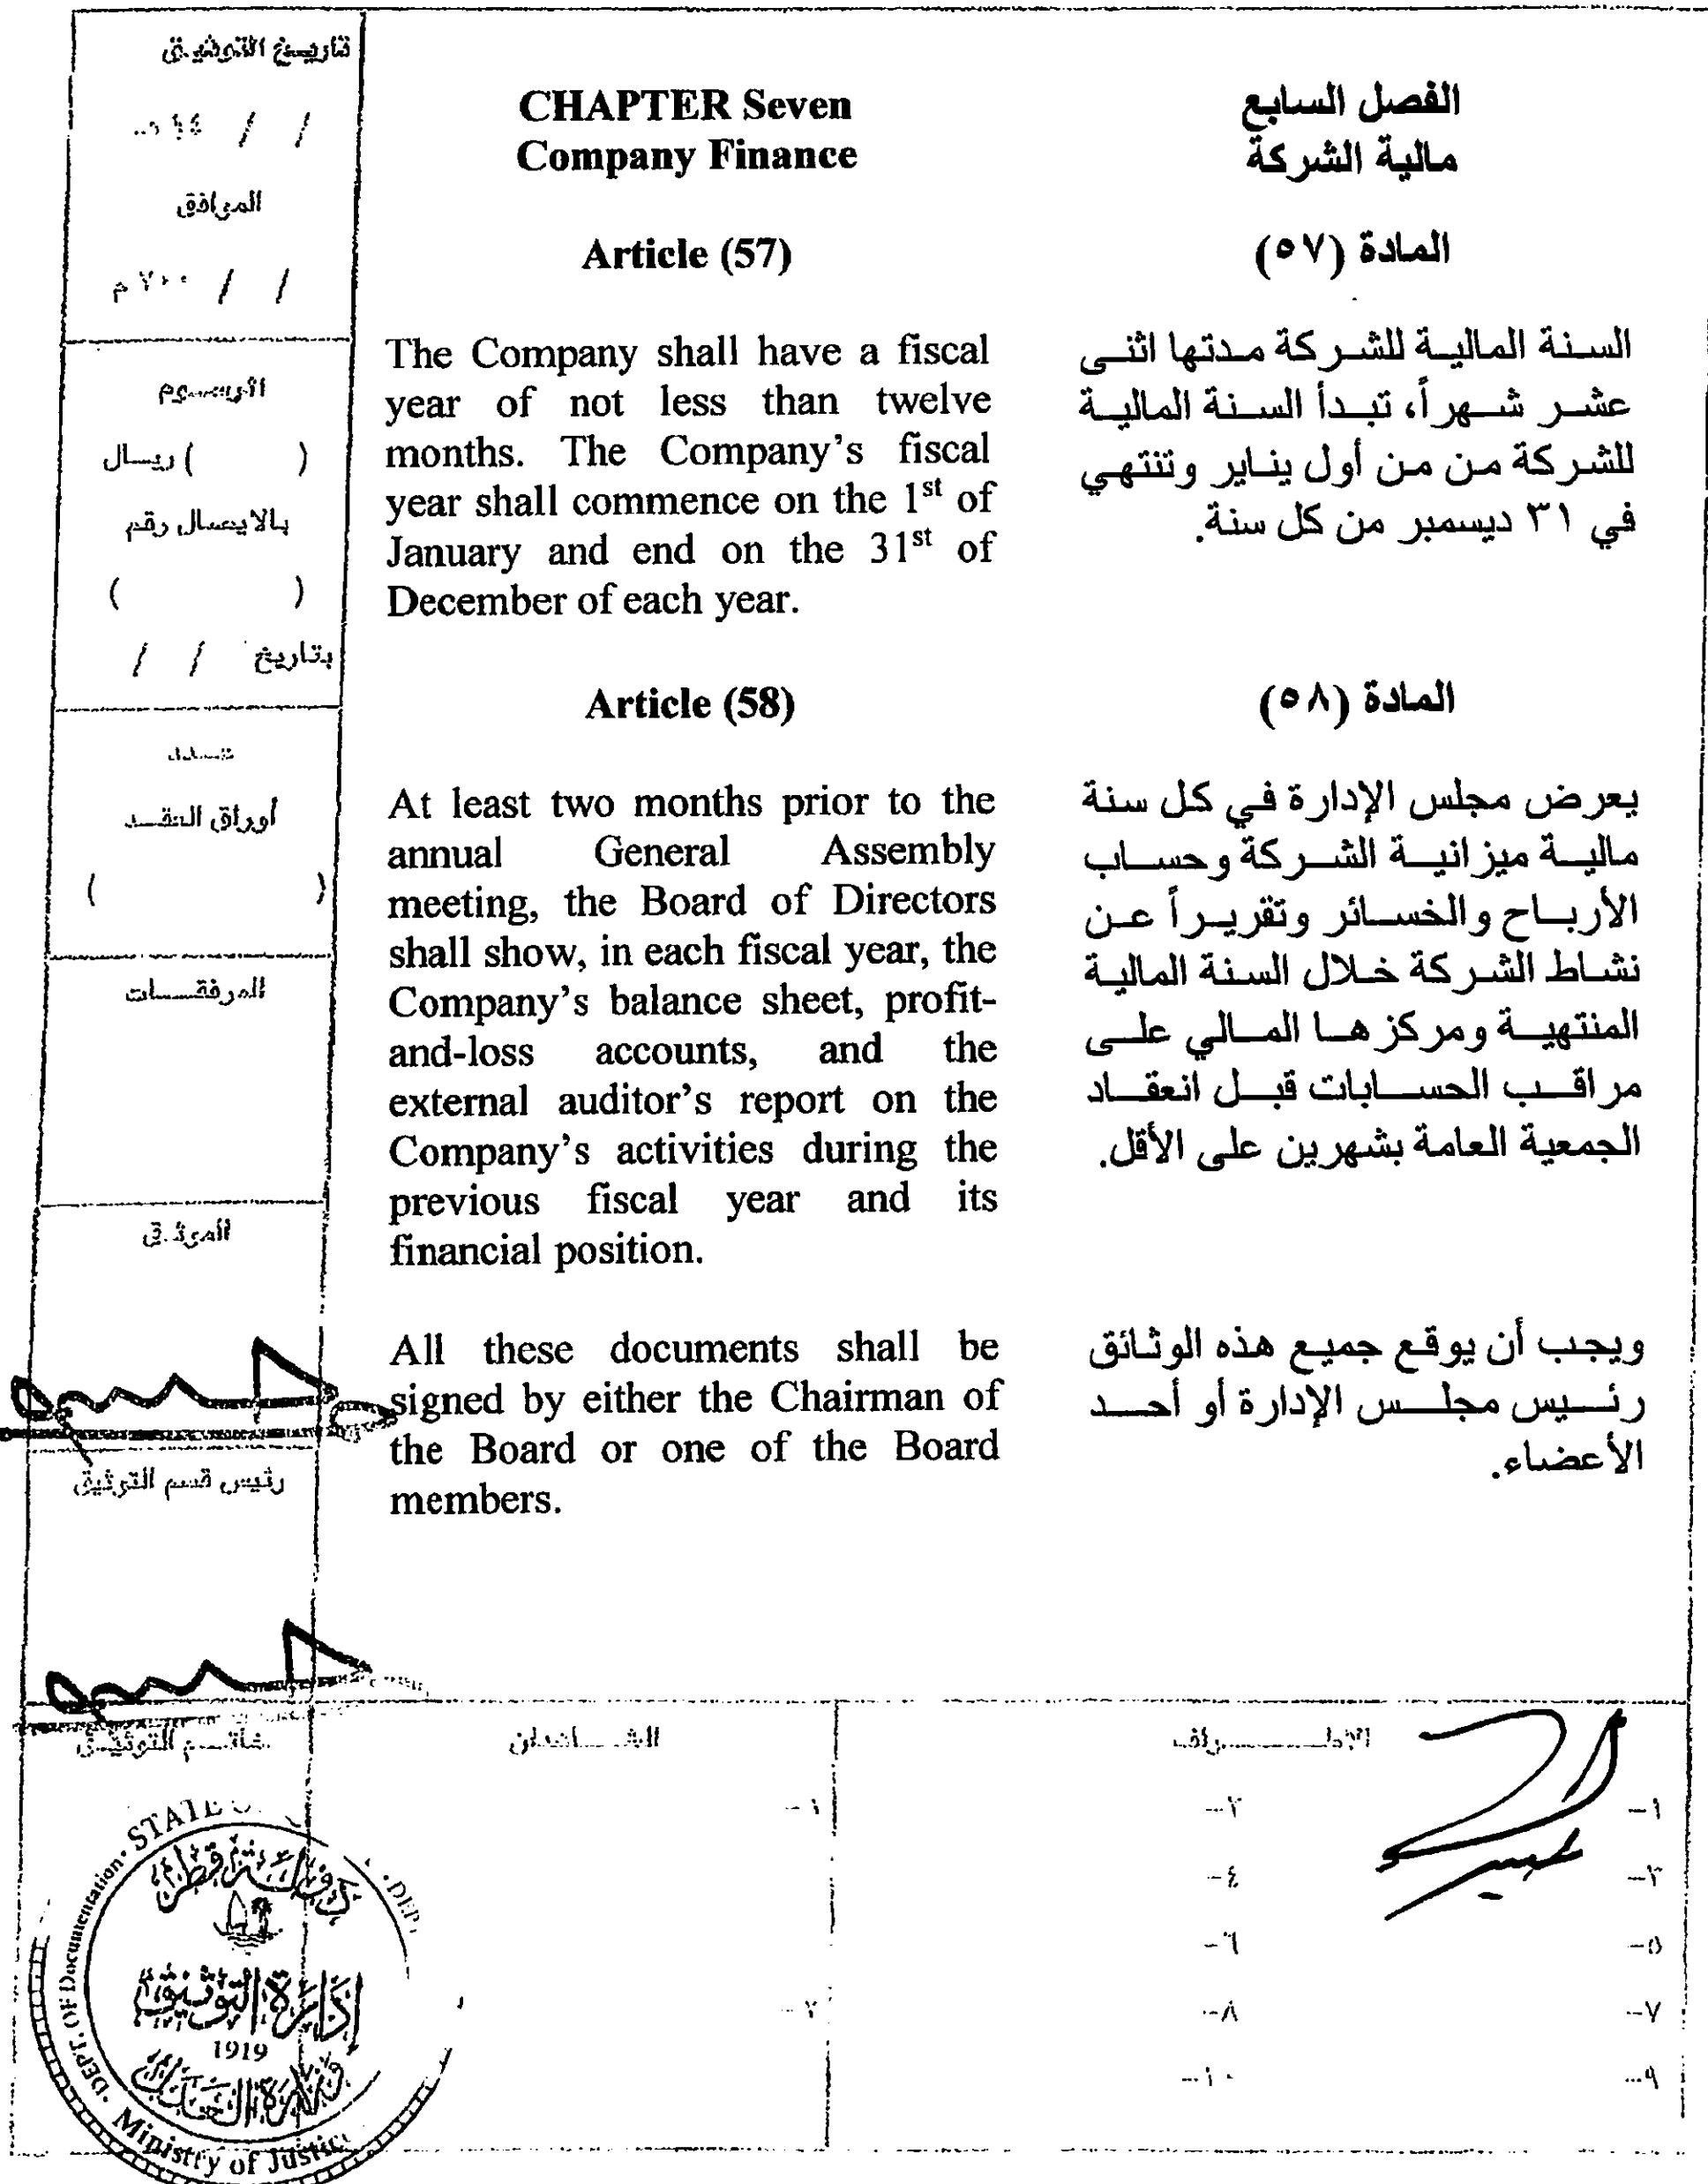 تاريخ التوثيق
/ / ١٤هـ
الموافق
/ / ٢٠٠م
الرسوم
( ) ريال
بالايصال رقم
( )
بتاريخ / /
عدد
أوراق العقد
( )
المرفقات
الموثق
رئيس قسم التوثيق
CHAPTER Seven
Company Finance
Article (57)
The Company shall have a fiscal
year of not less than twelve
months. The Company's fiscal
year shall commence on the 1st of
January and end on the 31st of
December of each year.
Article (58)
At least two months prior to the
annual General Assembly
meeting, the Board of Directors
shall show, in each fiscal year, the
Company's balance sheet, profit-
and-loss accounts, and the
external auditor's report on the
Company's activities during the
previous fiscal year and its
financial position.
All these documents shall be
signed by either the Chairman of
the Board or one of the Board
members.
الفصل السابع
مالية الشركة
المادة (٥٧)
السنة المالية للشركة مدتها اثنى
عشر شهراً، تبدأ السنة المالية
للشركة من من أول يناير وتنتهي
في ٣١ ديسمبر من كل سنة.
المادة (٥٨)
يعرض مجلس الإدارة في كل سنة
مالية ميزانية الشركة وحساب
الأرباح والخسائر وتقريراً عن
نشاط الشركة خلال السنة المالية
المنتهية ومركزها المالي على
مراقب الحسابات قبل انعقاد
الجمعية العامة بشهرين على الأقل.
ويجب أن يوقع جميع هذه الوثائق
رئيس مجلس الإدارة أو أحد
الأعضاء.
الأطراف
١-
٢-
٣-
٤-
٥-
٦-
٧-
٨-
٩-
١٠-
الشاهدان
١-
٢-
خاتم التوثيق
STATE
دولة قطر
إدارة التوثيق
1919
وزارة العدل
DEPT. OF Documentation
Ministry of Justice